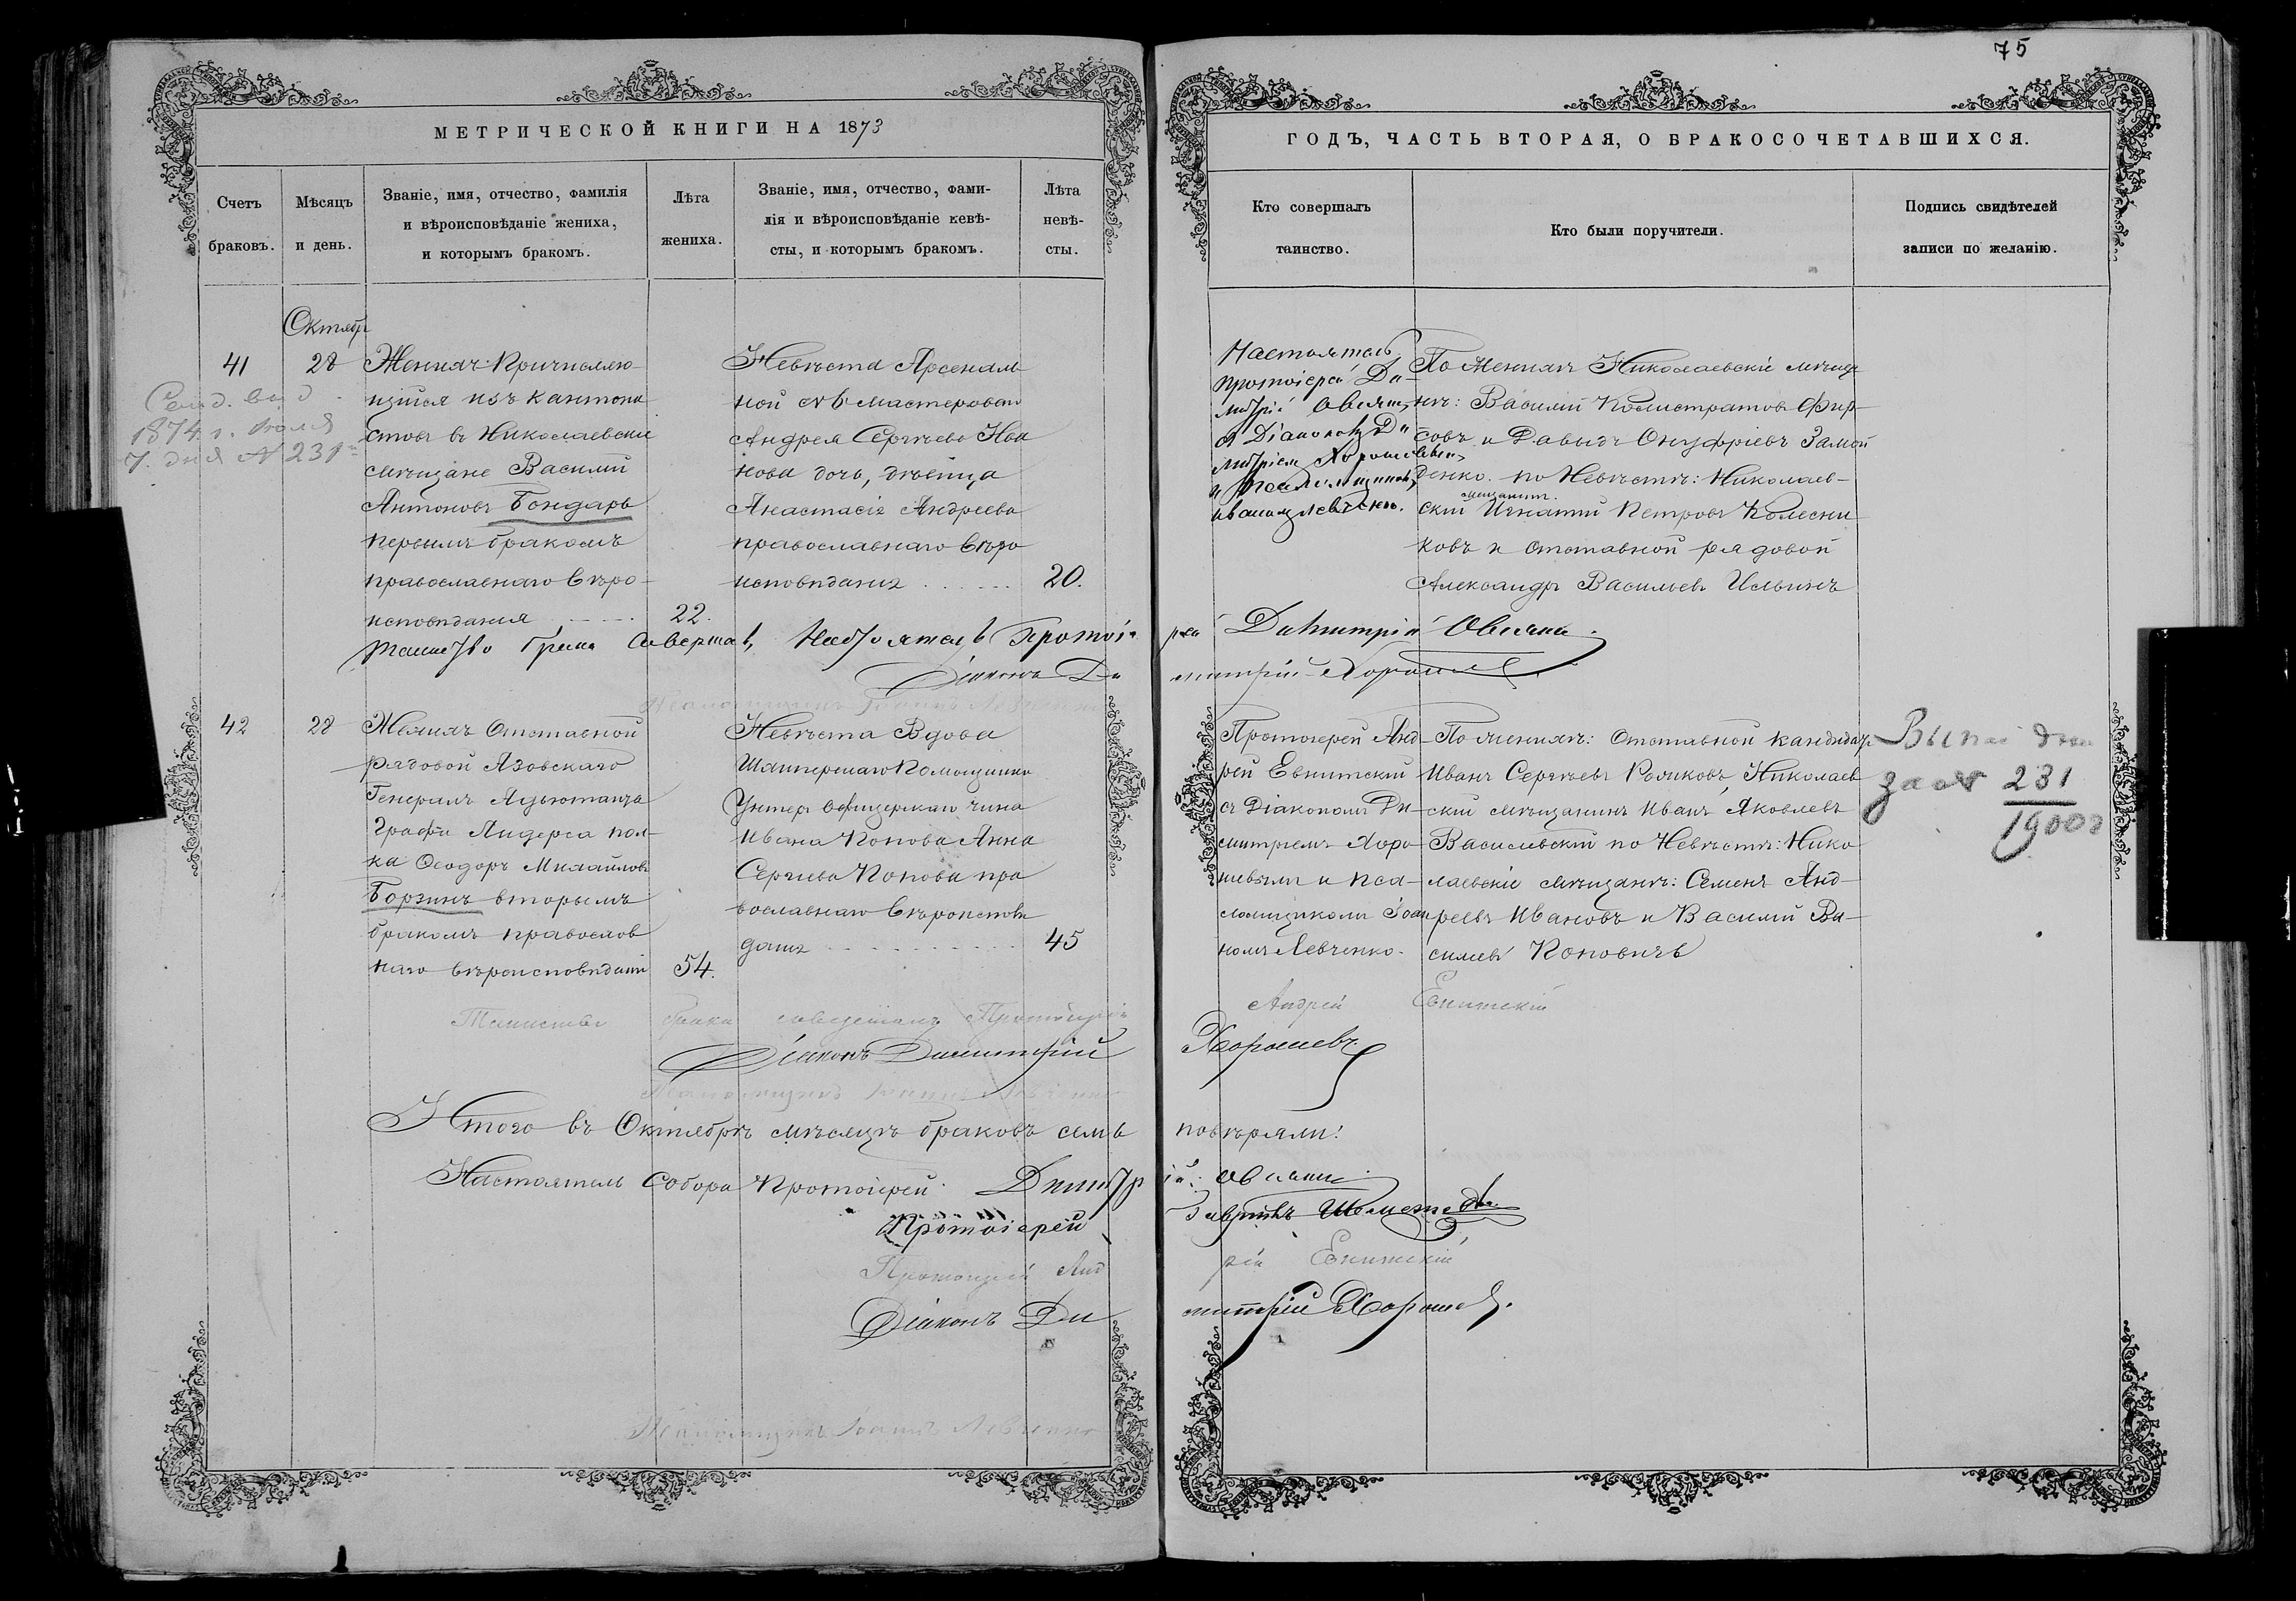 75
МЕТРИЧЕСКОЙ КНИГИ НА 1873
ГОДЪ, ЧАСТЬ ВТОРАЯ, О БРАКОСОЧЕТАВШИХСЯ.
Счетъ браковъ.
Мѣсяцъ и день.
Званіе, имя, отчество, фамилія
и вѣроисповѣданіе жениха,
и которымъ бракомъ.
Лѣта
жениха.
Званіе, имя, отчество, фами-
лія и вѣроисповѣданіе невѣ-
сты, и которымъ бракомъ.
Лѣта
невѣ-
сты.
Кто совершалъ
таинство.
Кто были поручители.
Подпись свидѣтелей
записи по желанію.
Октябр
41
28
1874 г.
7. дня № 231
Женихъ Причисляю-
щійся изъ кантони
стовъ въ Николаевскіе
мѣщане Василій
Антоновъ Бондарь
первымъ бракомъ
православнаго вѣро-
исповѣданія
22.
Невѣста Арсеналь
ной № 6 мастероваго
Андрея Сергѣева Ива
нова дочь, дѣвица
Анастасія Андреева
православнаго вѣро
исповѣданія
20.
Настоятель
протоіерей Ди-
митрій
съ Діакономъ Ди
митріемъ Хорошевымъ
и Псаломщикомъ
Иваномъ Левченко.
По Женихѣ Николаевскіе мѣща
не: Василій Калистратовъ Фир-
совъ и Давидъ Онуфріевъ Замой
денко. по Невѣстѣ: Николаев-
скій мѣщанинъ Игнатій Петровъ Колесни
ковъ и отставной рядовой
Александръ Васильевъ Ильинъ
Таинство брака совершалъ, Настоятель Протоіе
рей Димитрій
Діаконъ Ди
митрій Хорошевъ
Псаломщикъ Іоаннъ Левченко
42
28
Женихъ Отставной
рядовой Азовскаго
Генералъ Адъютанта
Графа Лидерса пол-
ка Ѳеодоръ Михайловъ
Борзинъ вторымъ
бракомъ православ
наго вѣроисповѣданія
54.
Невѣста Вдова
Шкиперскаго Помощника
Унтеръ офицерскаго чина
Ивана Попова Анна
Сергѣева Попова пра
вославнаго вѣроисповѣ
данія
45
Протоіерей Анд-
рей
съ Діакономъ Ди-
митріемъ Хоро-
шевымъ и Пса-
ломщикомъ Іоан
номъ Левченко.
По женихѣ: Отставной кандидатъ
Иванъ Сергѣевъ Роликовъ, Николаев
скій мѣщанинъ Иванъ Яковлевъ
Василевскій по Невѣстѣ: Нико
лаевскіе мѣщане: Семенъ Анд-
реевъ Ивановъ и Василій Ва-
сильевъ Поповичъ
за № 231
1900 г
Таинство брака совершалъ Протоіерей
Андрей
Діаконъ Димитрій
Хорошевъ
Псаломщикъ Іоаннъ Левченко
Итого въ Октябрѣ мѣсяцѣ браковъ семь
повѣряли:
Настоятель Собора Протоіерей Димитр
ій
Протоіерей
Протоіерей Анд
рей
Діаконъ Ди
митрій Хорошевъ.
Псаломщикъ Іоаннъ Левченко